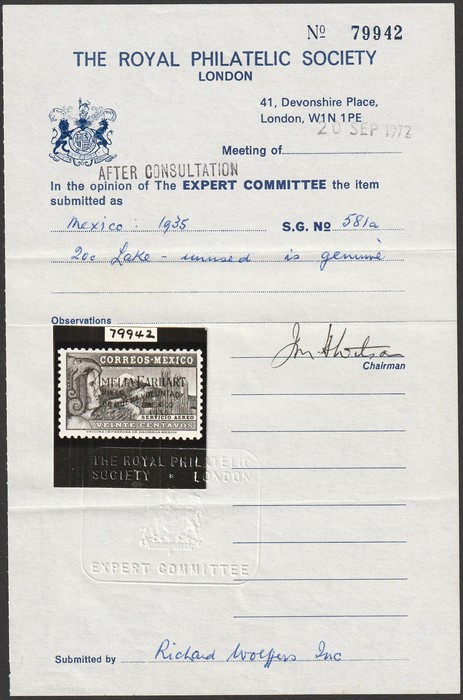 Nº 79942
THE ROYAL PHILATELIC SOCIETY
LONDON
41, Devonshire Place,
London, W1N 1PE
20 SEP 1972
Meeting of
AFTER CONSULTATION
In the opinion of The EXPERT COMMITTEE the item
submitted as
Mexico: 1935 S.G. Nº 581a
20c Lake - unused is genuine
Observations
79942
Chairman
CORREOS·MEXICO
AMELIA EARHART
MEXICO
1935
SERVICIO AEREO
VEINTE CENTAVOS
THE ROYAL PHILATELIC
SOCIETY * LONDON
EXPERT COMMITTEE
Submitted by Richard Wolffers Inc